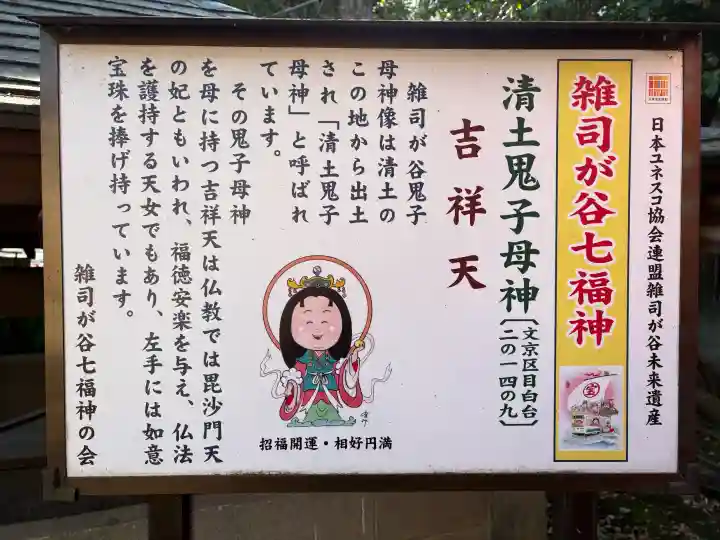 日本ユネスコ協会連盟雑司が谷未来遺産
雑司が谷七福神
清土鬼子母神〔文京区目白台二の一四の九〕
吉祥天
雑司が谷鬼子
母神像は清土の
この地から出土
され「清土鬼子
母神」と呼ばれ
ています。
その鬼子母神
を母に持つ吉祥天は仏教では毘沙門天
の妃ともいわれ、福徳安楽を与え、仏法
を護持する天女でもあり、左手には如意
宝珠を捧げ持っています。
雑司が谷七福神の会
招福開運・相好円満
宝